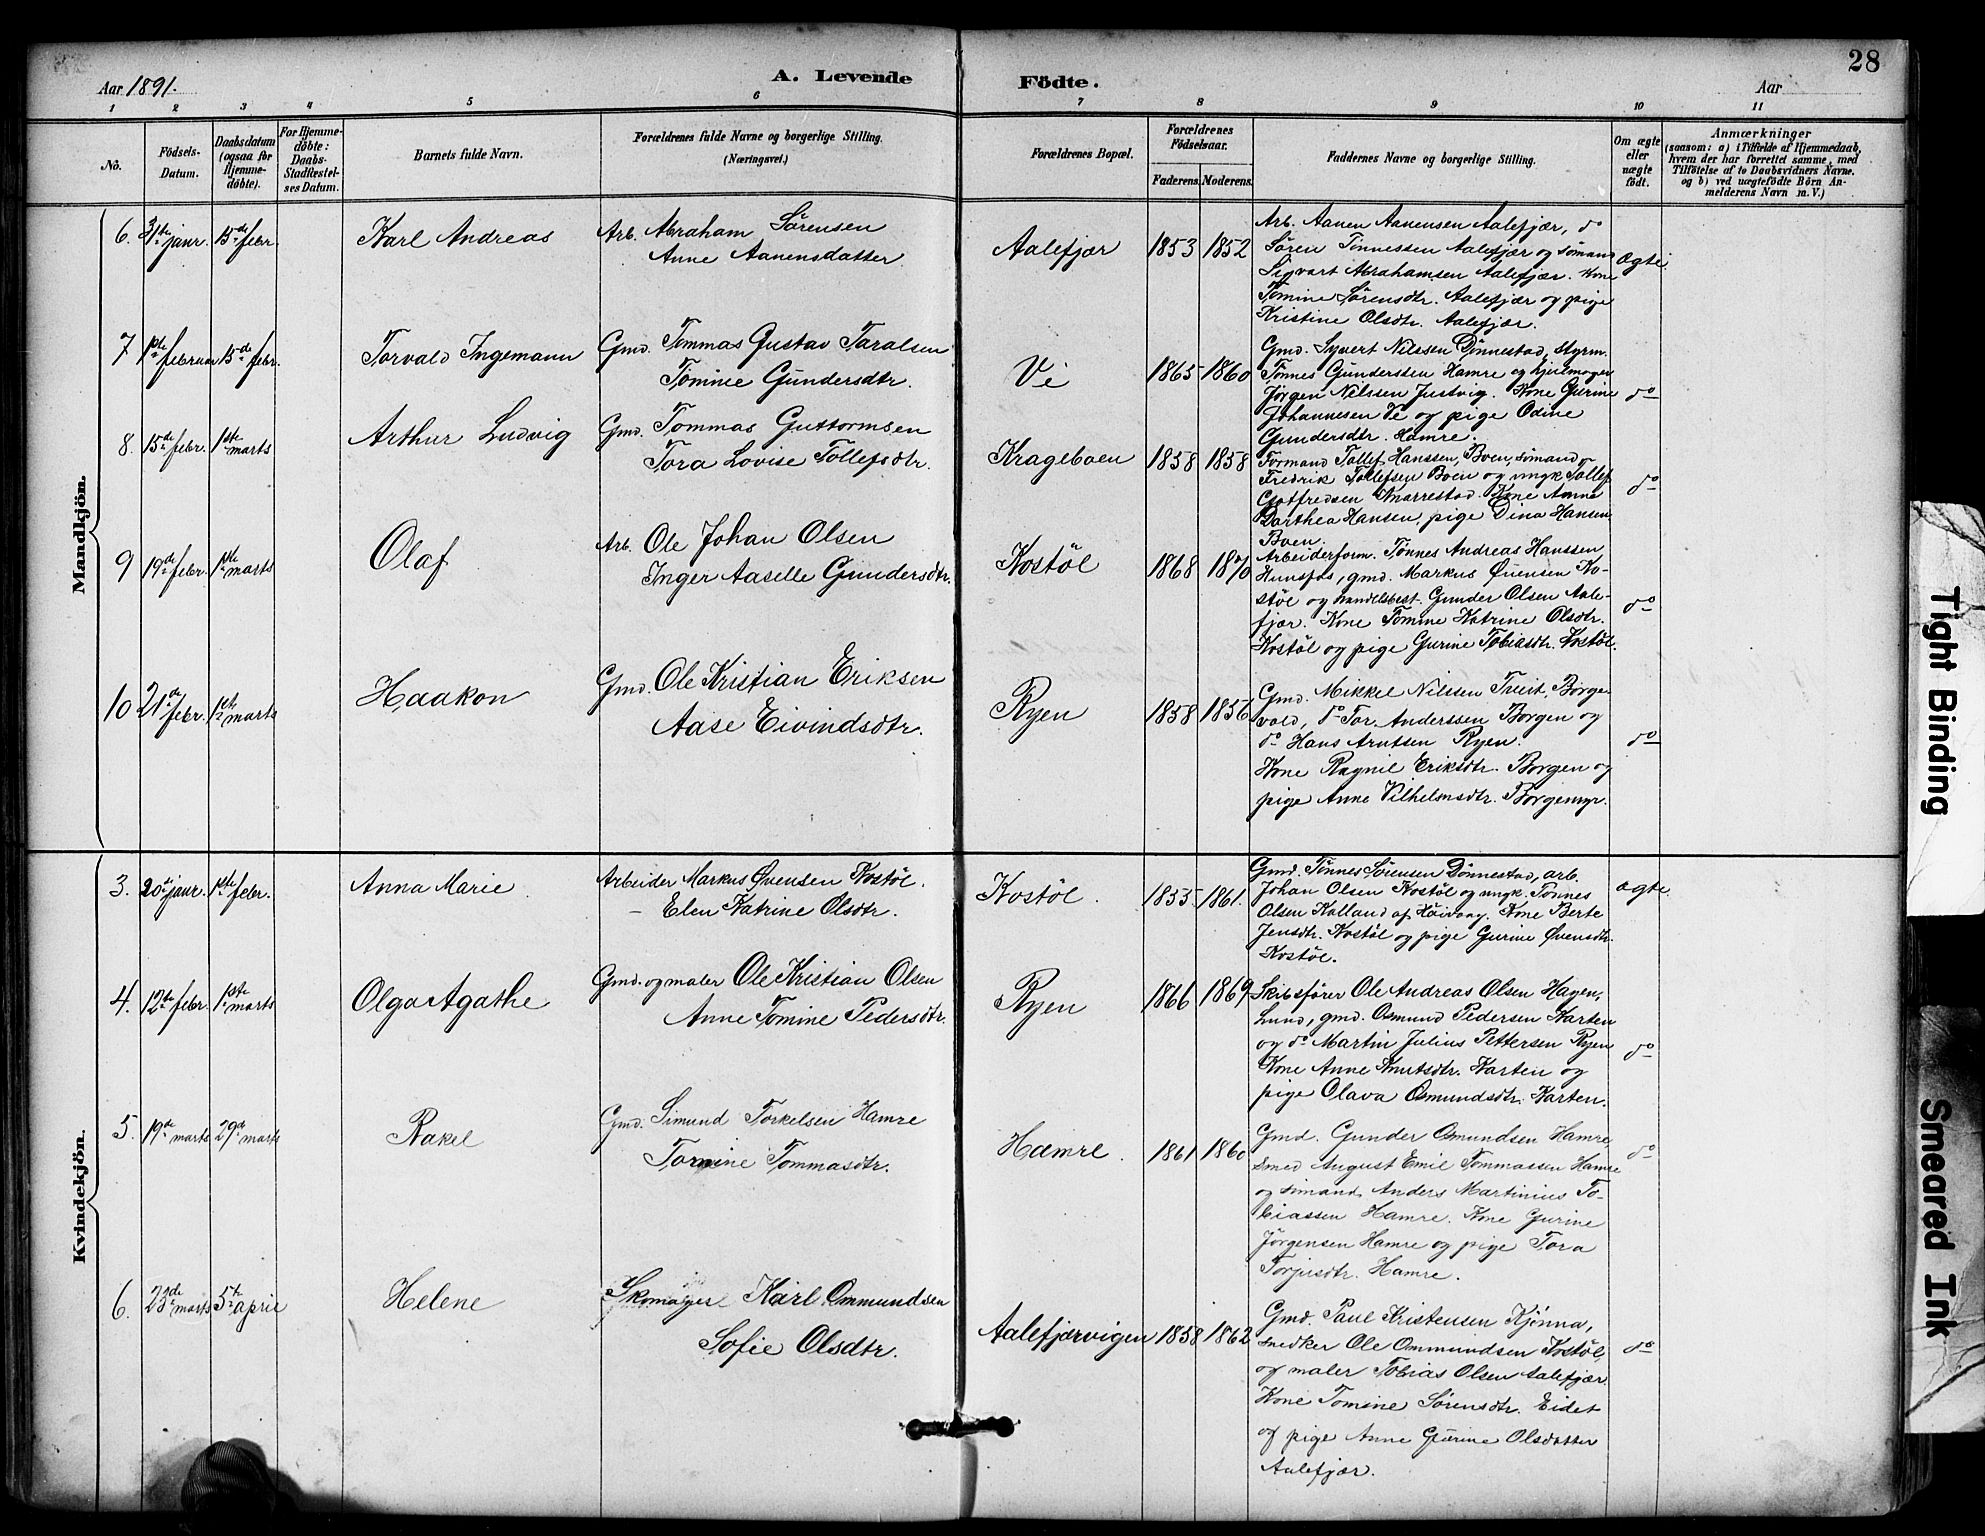 28
A. Levende Födte.
Aar 1891.
Aar
1 2 3 4 5 6 7 8 9 10 11
No.
Födsels-Datum.
Daabsdatum (ogsaa for Hjemmedöbte).
For Hjemmedöbte: Daabs-Stadfæstelses Datum.
Barnets fulde Navn.
Forældrenes fulde Navne og borgerlige Stilling.
(Næringsvei.)
Forældrenes Bopæl.
Forældrenes Födselsaar.
Faderens. Moderens.
Faddernes Navne og borgerlige Stilling.
Om ægte eller uægte födt.
Anmærkninger
(saasom: a) i Tilfælde af Hjemmedaab, hvem der har forrettet samme, med Tilföielse af to Daabsvidners Navne. og b) ved uægtefödte Börn Anmelderens Navn m. V.)
Mandkjön.
6. 31te janr. 15de febr.
Karl Andreas
Arb. Abraham Sörensen
Anne Aanensdatter
Aalefjær
1853 1852
Arb. Aanen Aanensen Aalefjær, do
Sören Tönnessen Aalefjær og sömand
Sigvart Abrahamsen Aalefjær. Kone
Tomine Sörensdtr. Aalefjær og pige
Kristine Olsdtr. Aalefjær.
ægte
7 1ste februar 15de febr.
Torvald Ingemann
Gmd. Tommas Gustav Taralsen
Tomine Gundersdtr.
Ve
1865 1860
Gmd. Syvert Nilssen Dönnestad, styrm.
Tönnes Gunderssen Hamre og hjulmager
Jörgen Nilssen Justvig. Kone Gurine
Johannesen Ve og pige Odine
Gundersdtr. Hamre.
do
8. 15de febr. 1ste marts
Arthur Ludvig
Gmd. Tommas Guttormsen
Tora Lovise Tollefsdtr.
Krageboen
1858 1858
Formand Tollef Hanssen, Boen, sömand
Fredrik Tollefsen Boen og ungk. Tollef
Gotfredsen Knarrestad. Kone Anna
Dorthea Hansen, pige Dina Hansen
Boen.
do
9 19de febr. 1ste marts
Olaf
Arb. Ole Johan Olsen
Inger Aaselle Gundersdtr.
Kostöl
1868 1870
Arbeiderform. Tönnes Andreas Hanssen
Hunsfos, gmd. Markus Øvensen Ko-
stöl og handelsbest. Gunder Olsen Aale-
fjær. Kone Tomine Katrine Olsdtr.
Kostöl og pige Gurine Tobiasdtr. Kostöl.
do
10 21de febr. 1ste marts
Haakon
Gmd. Ole Kristian Eriksen
Aase Eivindsdtr.
Ryen
1858 1856
Gmd. Mikkel Nilssen Tveit, Borge-
vold, do Tor. Anderssen Borgen og
do Hans Arntsen Ryen.
Kone Ragnil Eriksdtr. Borgen og
pige Anne Vilhelmsdtr. Borgemyr.
do
Kvindekjön.
3. 20de janr. 1ste febr.
Anna Marie
Arbeider Markus Øvensen Kostöl.
– Elen Katrine Olsdtr.
Kostöl.
1835 1861.
Gmd. Tönnes Sörensen Dönnestad, arb.
Johan Olsen Kostöl og ungk. Tönnes
Olsen Kalland af Höivaag. Kone Berte
Jensdtr. Kostöl og pige Gurine Øvensdtr.
Kostöl.
ægte.
4. 12te febr. 1ste marts
Olga Agathe
Gmd. og maler Ole Kristian Olsen
Anne Tomine Pedersdtr.
Ryen
1866 1869
Skibsförer Ole Andreas Olsen Hagen,
Lund, gmd. Osmund Pedersen Karten
og do Martin Julius Pettersen Ryen
Kone Anne Knutsdtr. Karten og
pige Olava Osmundsdtr. Karten.
do
5. 19de marts 29de marts
Rakel
Gmd. Simund Torkelsen Hamre
Tomine Tommasdtr.
Hamre.
1861 1860
Gmd. Gunder Osmundsen Hamre
Smed August Emil Tommassen Hamre
og sömand Anders Martinius To-
biassen Hamre. Kone Gurine
Jörgensen Hamre og pige Tora
Torjusdtr. Hamre.
do
6. 23de marts 5te april
Helene
Skomager Karl Ommundsen
Sofie Olsdtr.
Aalefjærvigen
1858 1862
Gmd. Paul Kristensen Kjönna,
snedker Ole Ommundsen Kostöl,
og maler Tobias Olsen Aalefjær.
Kone Tomine Sörensdtr. Eidet
og pige Anne Gurine Olsdatter
Aalefjær.
do
Tight Binding
Smeared Ink